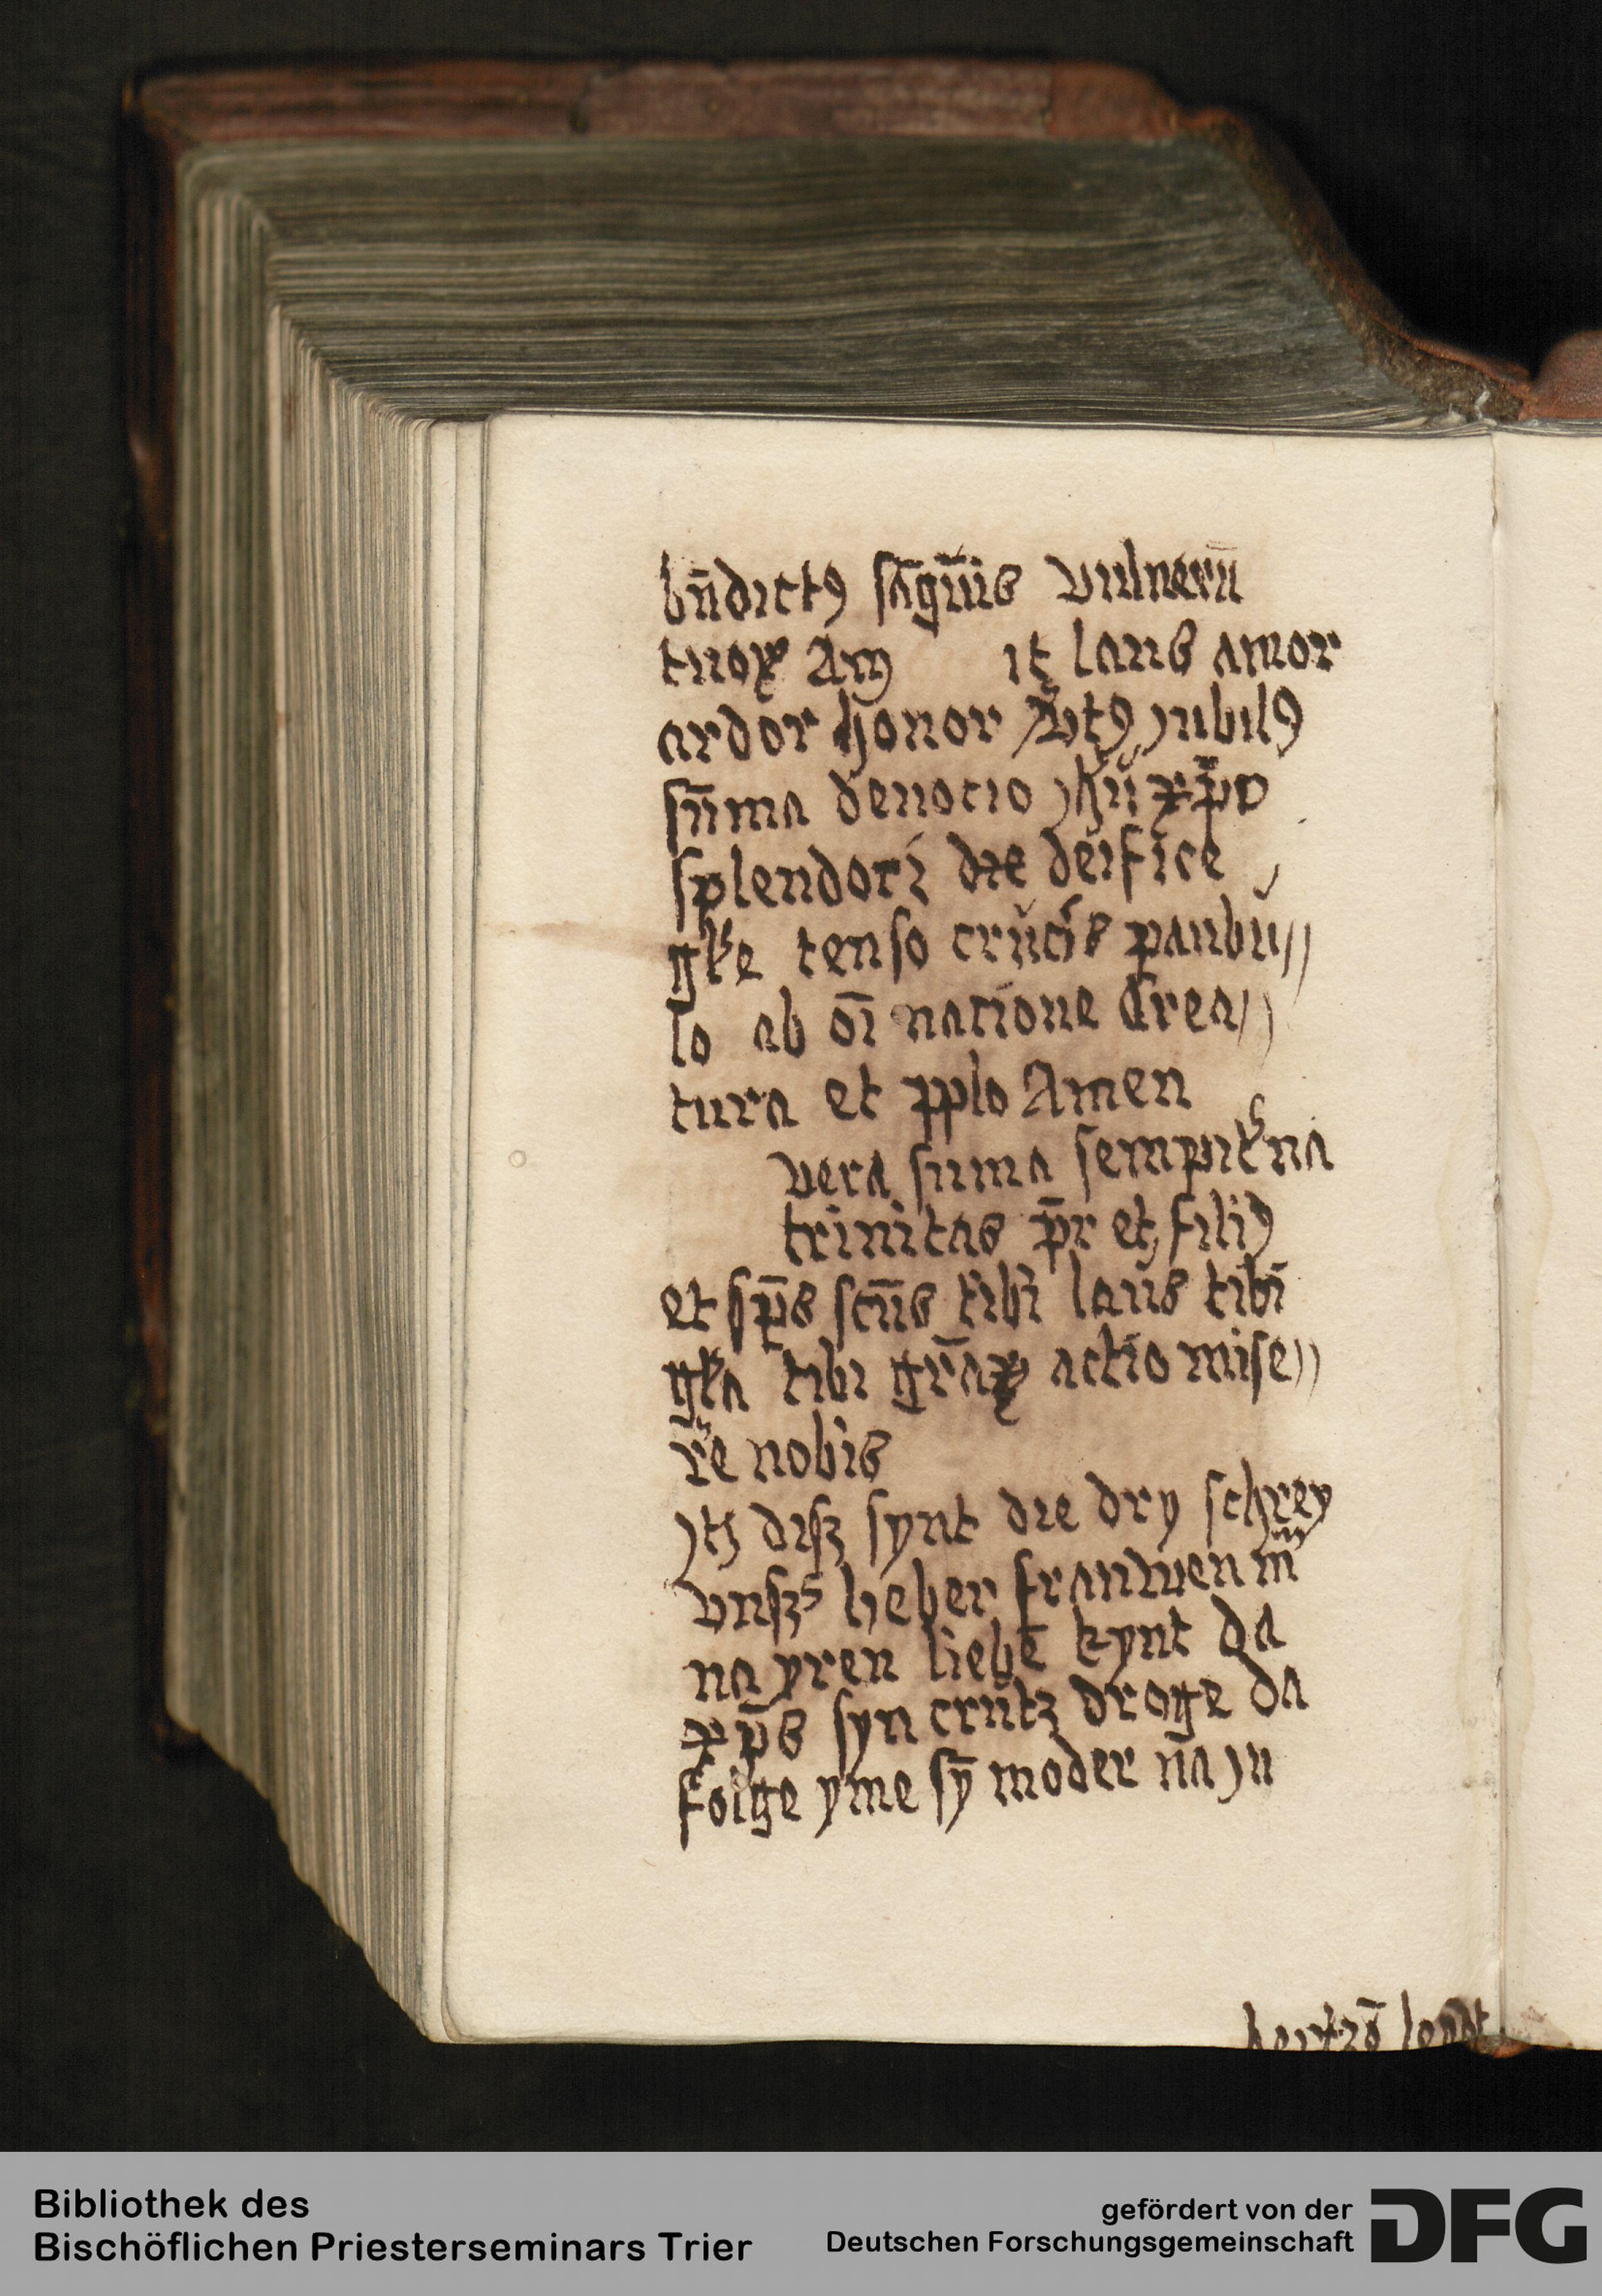 bn̄dictꝰ sāgūīs vulnerū
tuoꝝ Am̄ it laus amor
ardor honor v̄tꝰ jubilꝰ
sūma deuocio jhū xp̄o
splendori die deifice
gl'e tenso crucis patibu//
lo ab oī natione Crea//
tura et pplo Amen
vera suma sempit'na
trinitas p̄r et filiꝰ
et sp̄s sc̄us tibi laus tibi
gl'a tibi gr̄aꝝ actio mise//
r'e nobis
jtꝫ disz synt die dry schrey
vnsz' lieber frauwen m̄
na yren liebē kynt da
xp̄s syn crutz droge da
folge yme sȳ moder n̄a ju
hertzō
Bibliothek des
Bischöflichen Priesterseminars Trier
gefördert von der
Deutschen Forschungsgemeinschaft
DFG